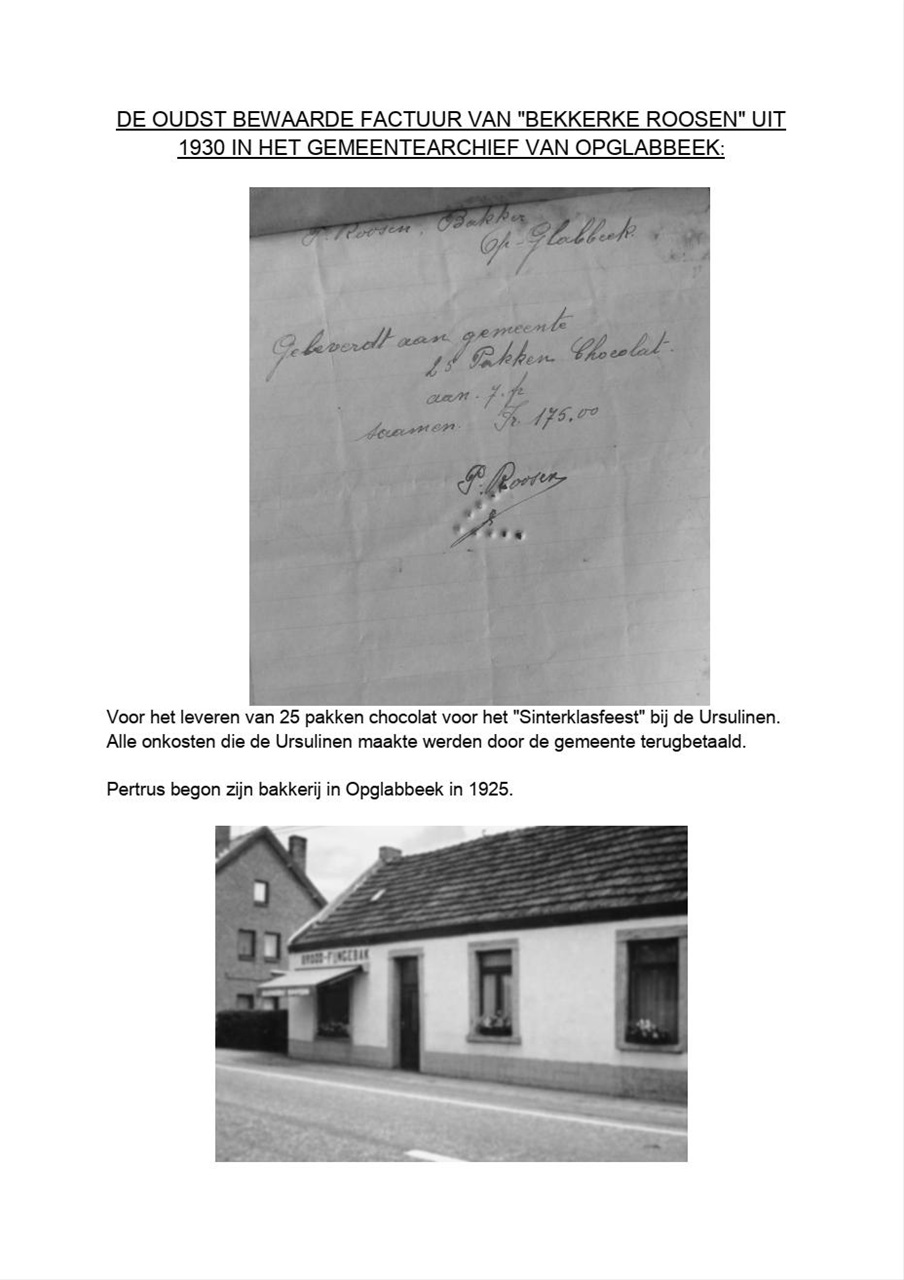 DE OUDST BEWAARDE FACTUUR VAN "BEKKERKE ROOSEN" UIT
1930 IN HET GEMEENTEARCHIEF VAN OPGLABBEEK:
P. Roosen, Bakker
Op-Glabbeek.
Geleverdt aan gemeente
25 Pakken Chocolat.
aan. 7. fr
saamen. Fr. 175,00
P. Roosen
Voor het leveren van 25 pakken chocolat voor het "Sinterklasfeest" bij de Ursulinen.
Alle onkosten die de Ursulinen maakte werden door de gemeente terugbetaald.
Pertrus begon zijn bakkerij in Opglabbeek in 1925.
BROOD-FIJNGEBAK